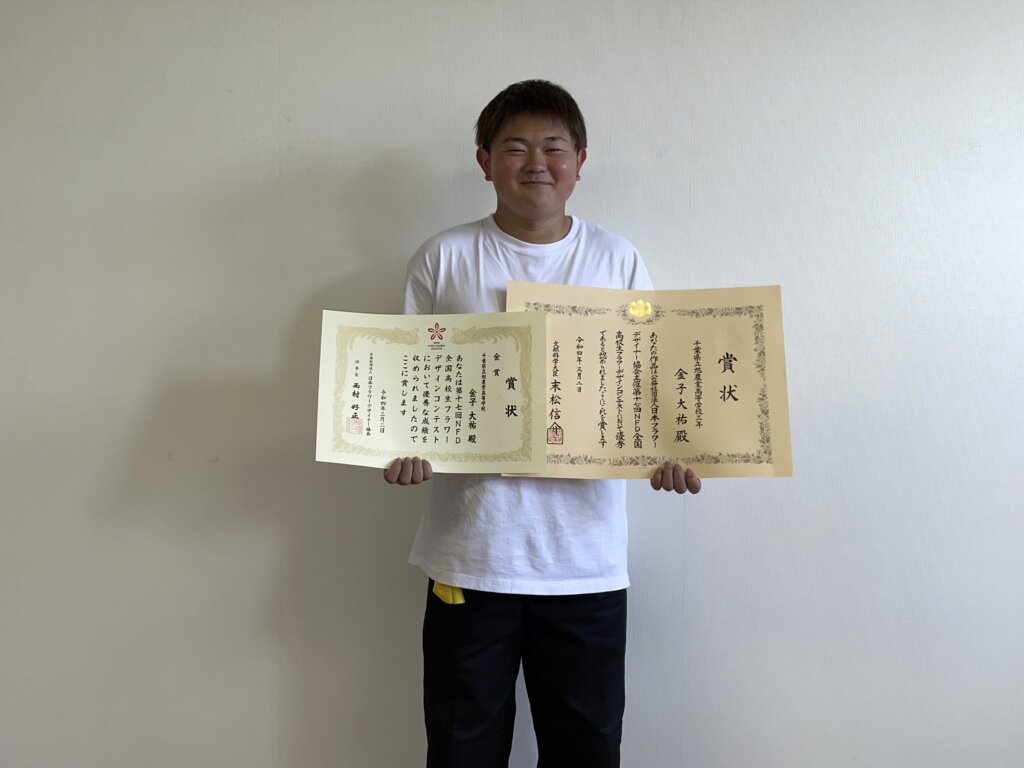 賞状
金賞
千葉県立旭農業高等学校
金子 大祐 殿
あなたは第十七回NFD
全国高校生フラワー
デザインコンテスト
において優秀な成績を
収められましたので
ここに賞します
令和四年三月二日
公益社団法人 日本フラワーデザイナー協会
理事長
賞状
千葉県立旭農業高等学校三年
金子大祐殿
あなたの作品は公益社団法人日本フラワー
デザイナー協会主催第十七回NFD全国
高校生フラワーデザインコンテストにおいて優秀
であると認められましたのでこれを賞します
令和四年三月二日
文部科学大臣 末松信介